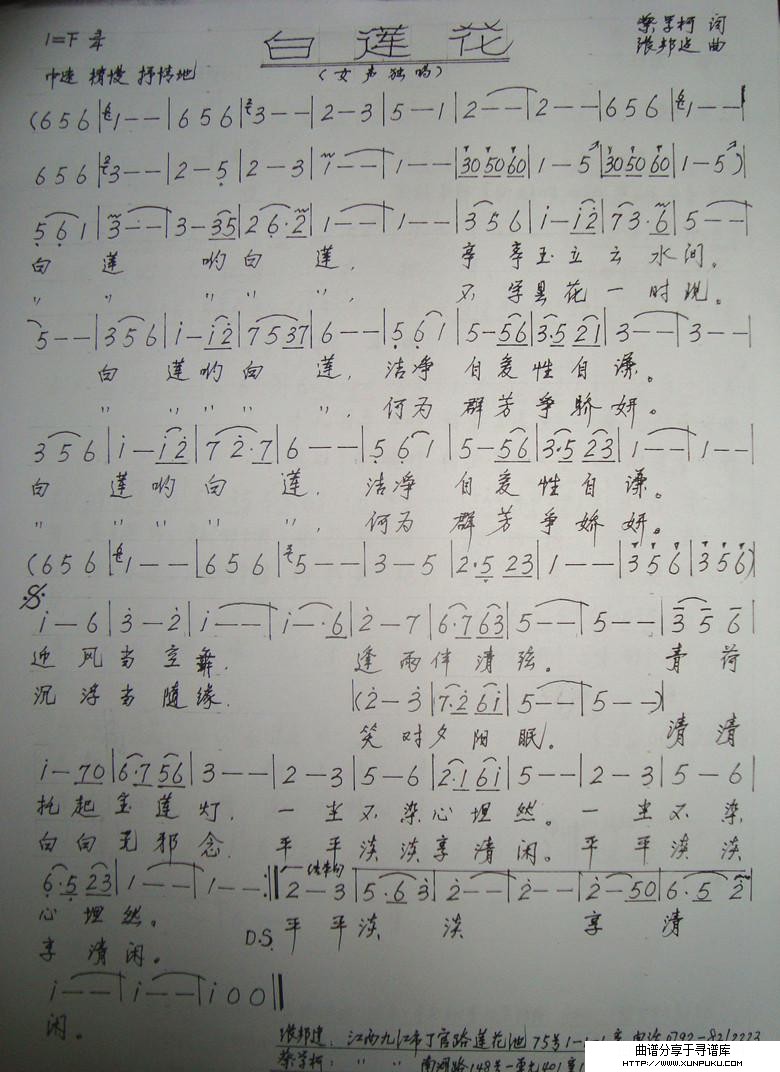 白莲花
1=F 3/4
蔡学柯 词
中速 稍慢 抒情地
(女声独唱)
张邦建 曲
(656|1--|656|3--|2-3|5-1|2--|2--|656|1--|
656|3--|2-5|2-3|1--|1--|30 50 60|1-5|30 50 60|1-5)
561|3--|3-35|26·2|1--|1--|356|i-i2|73·6|5--|
白莲哟白莲, 亭亭玉立云水间。
〃 〃 〃 〃 〃, 不学昙花一时现。
5--|356|i-i2|7537|6--|561|5-56|3·5 21|3--|3--|
白莲哟白莲, 洁净自爱性自谦。
〃 〃 〃 〃 〃, 何为群芳争骄妍。
356|i-i2|72·7|6--|561|5-56|3·5 23|1--|1--|
白莲哟白莲, 洁净自爱性自谦。
〃 〃 〃 〃 〃, 何为群芳争娇妍。
(656|1--|656|5--|3-5|2·5 23|1--|356|356)
i-6|3-2|i--|i-·6|2-7|6·7 63|5--|5--|3 5 6
迎风当空舞, 逢雨伴清弦。 青荷
沉浮当随缘, (2-3|7·2 6i|5--|5--)
笑对夕阳眠。 清清
i-70|6·7 56|3--|2-3|5-6|2·1 61|5--|2-3|5-6|
托起宝莲灯, 一尘不染心坦然。一尘不染
白白无邪念, 平平淡淡享清闲。平平淡淡
6·5 23|1--|1--:‖ 结束句 2-3|5·6 3|2--|2--|2-50|6·5 2|
心坦然。
享清闲。 D.S. 平平淡 淡 享 清
i--|i--|i00‖
闲。
张邦建: 江西九江市丁官路莲花池75号1-1-1
蔡学柯: 〃 〃 南湖路148号一单元401室
曲谱分享于寻谱库
HTTP://WWW.XUNPUKU.COM